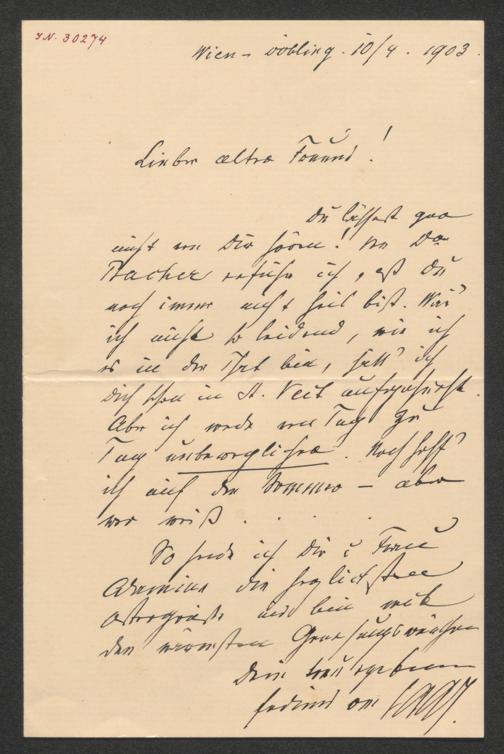 J.N. 30274
Wien-Döbling. 10/4. 1903.
Lieber alter Freund!
Du läßest gar
nicht von Dir hören! Von Dr
Pacher erfuhr ich, daß Du
noch immer nicht heil bist. Wär'
ich nicht so leidend, wie ich
es in der That bin, hätt' ich
Dich schon in St. Veit aufgesucht.
Aber ich werde von Tag zu
Tag unbeweglicher. Noch hoff'
ich auf den Sommer – aber
wer weiß . . . .
So sende ich Dir u Frau
die herzlichsten
Ostergrüße und bin mit
den wärmsten Genesungswünschen
Dein treu ergebener
Ferdinand von Saar.